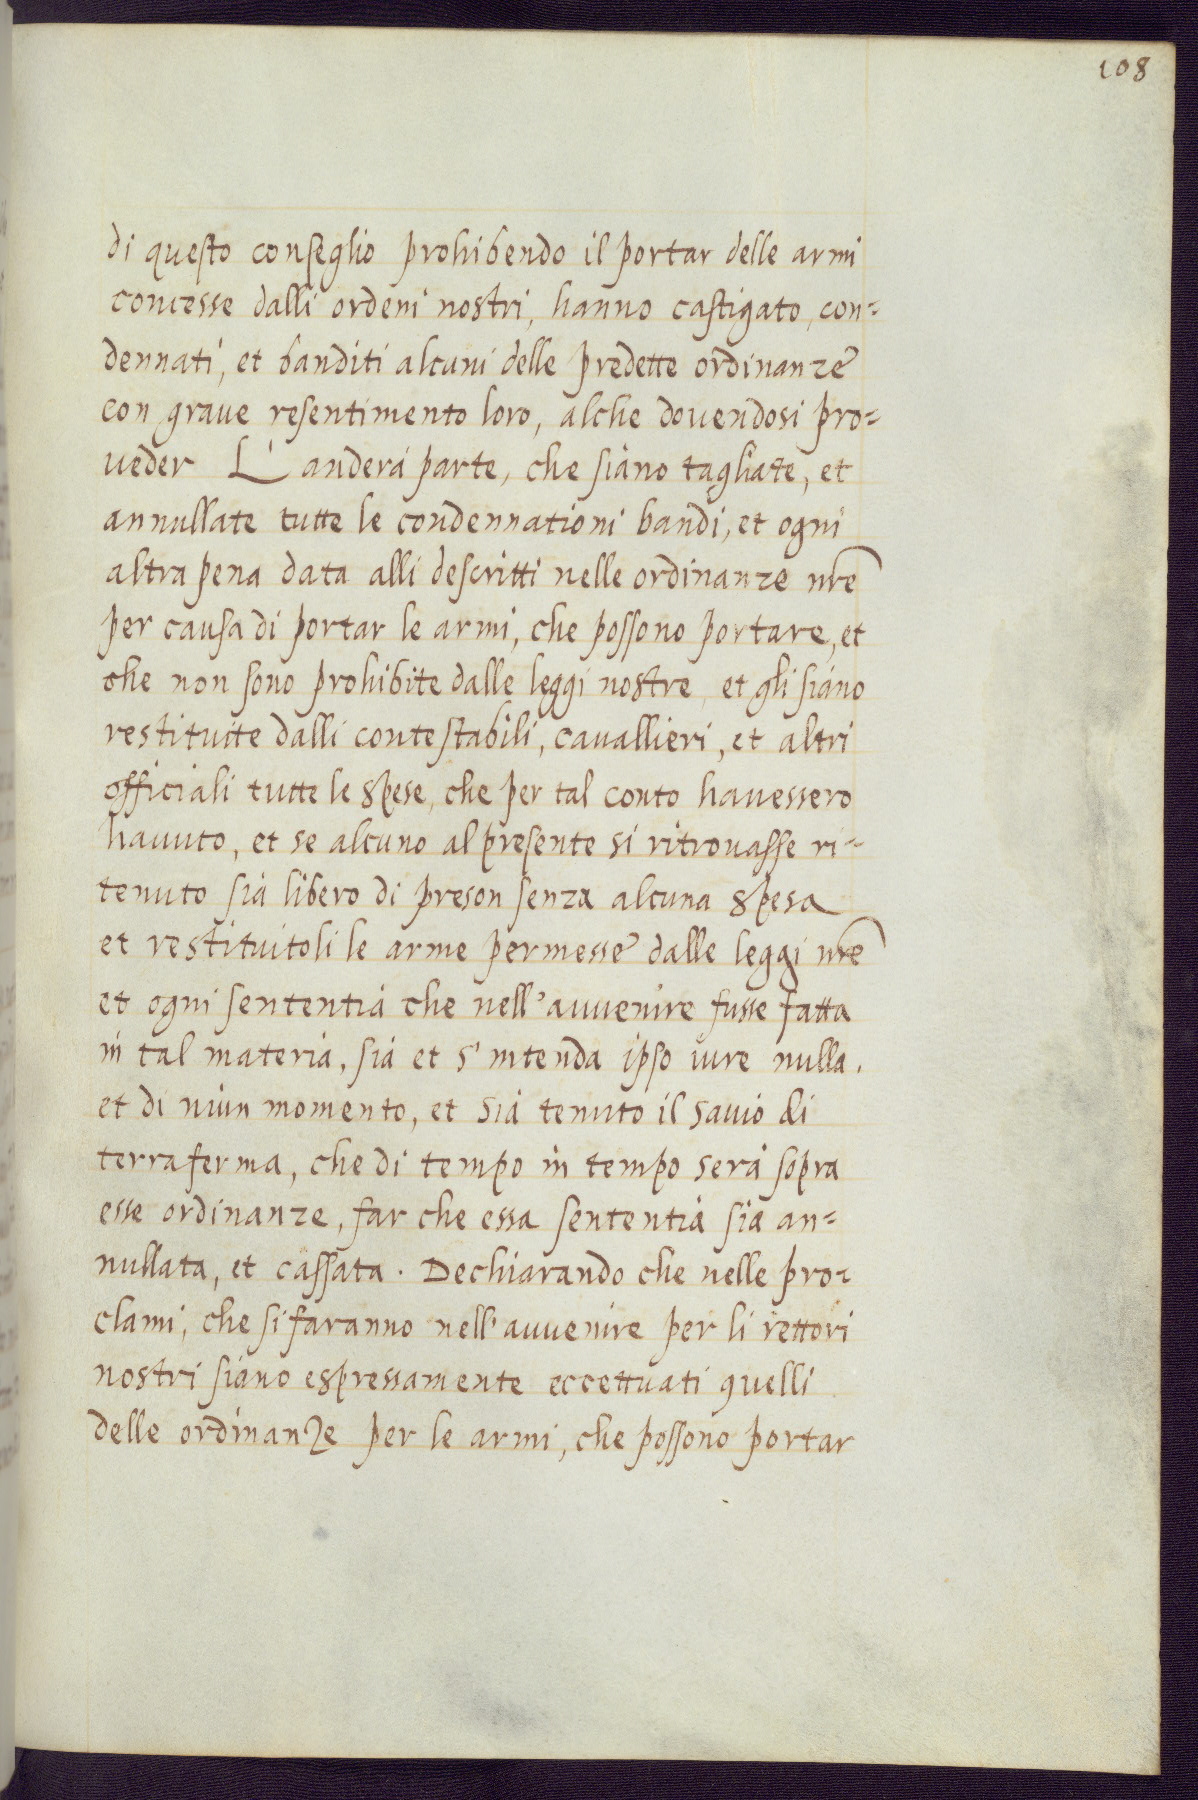 108
di questo conseglio prohibendo il portar delle armi
concesse dalli ordeni nostri, hanno castigato, con=
dennati, et banditi alcuni delle predette ordinanze
con grave resentimento loro, alche dovendosi pro=
veder L'anderá parte, che siano tagliate, et
annullate tutte le condennationi bandi, et ogni
altra pena data alli descritti nelle ordinanze nr̃e
per causa di portar le armi, che possono portare, et
che non sono prohibite dalle leggi nostre, et gli siano
restituite dalli contestabili, cavallieri, et altri
officiali tutte le spese, che per tal conto havessero
havuto, et se alcuno al presente si ritrovasse ri=
tenuto sia libero di preson senza alcuna spesa
et restituitoli le arme permesse dalle leggi nr̃e
et ogni sententia che nell'avvenire fusse fatta
in tal materia, sia et s'intenda ipso iure nulla.
et di niun momento, et sia tenuto il savio di
terraferma, che di tempo in tempo será sopra
esse ordinanze, far che essa sententia sia an=
nullata, et cassata. Dechiarando che nelle pro=
clami, che si faranno nell'avvenire per li rettori
nostri siano espressamente eccettuati quelli
delle ordinanze per le armi, che possono portar